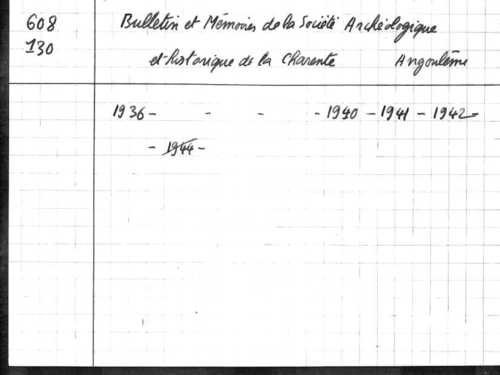 608 Bulletin et Mémoires de la Société Archéologique
130 et historique de la Charente Angoulême
1936 - - - - 1940 - 1941 - 1942 -
- 1944 -